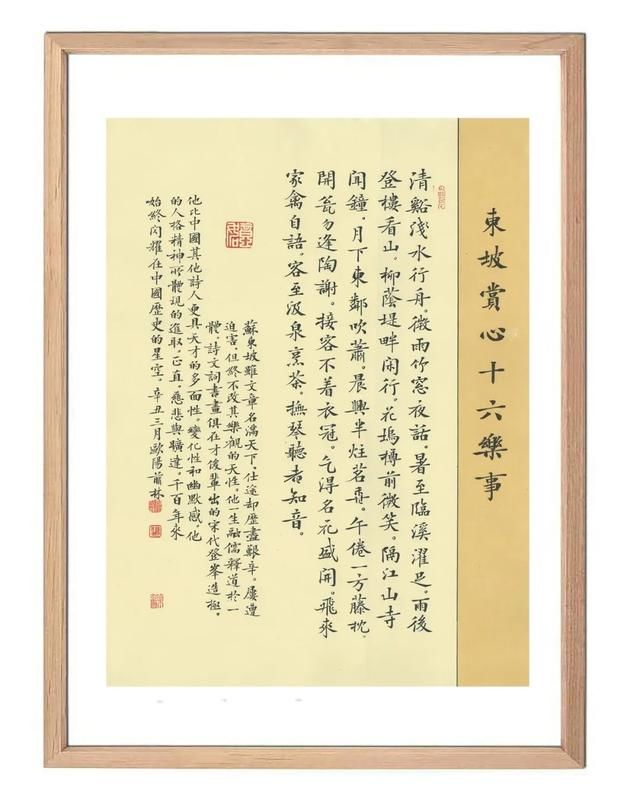 東坡賞心十六樂事
清谿淺水行舟。微雨竹窓夜話。暑至臨溪濯足。雨後
登樓看山。柳蔭堤畔閑行。花塢樽前微笑。隔江山寺
聞鐘。月下東鄰吹蕭。晨興半炷茗香。午倦一方藤枕。
開瓮勿逢陶謝。接客不着衣冠。乞得名花盛開。飛來
家禽自語。客至汲泉烹茶。撫琴聽者知音。
蘇東坡雖文章名滿天下,仕途却歷盡艱辛。屢遭
迫害,但終不改其樂觀的天性。他一生融儒釋道於一
體,詩文詞書畫俱在才俊輩出的宋代登峯造極。
他比中國其他詩人更具天才的多面性、變化性和幽默感。他
的人格精神所體現的進取、正直、慈悲與曠達,千百年來
始終閃耀在中國歷史的星空。辛丑三月歐陽